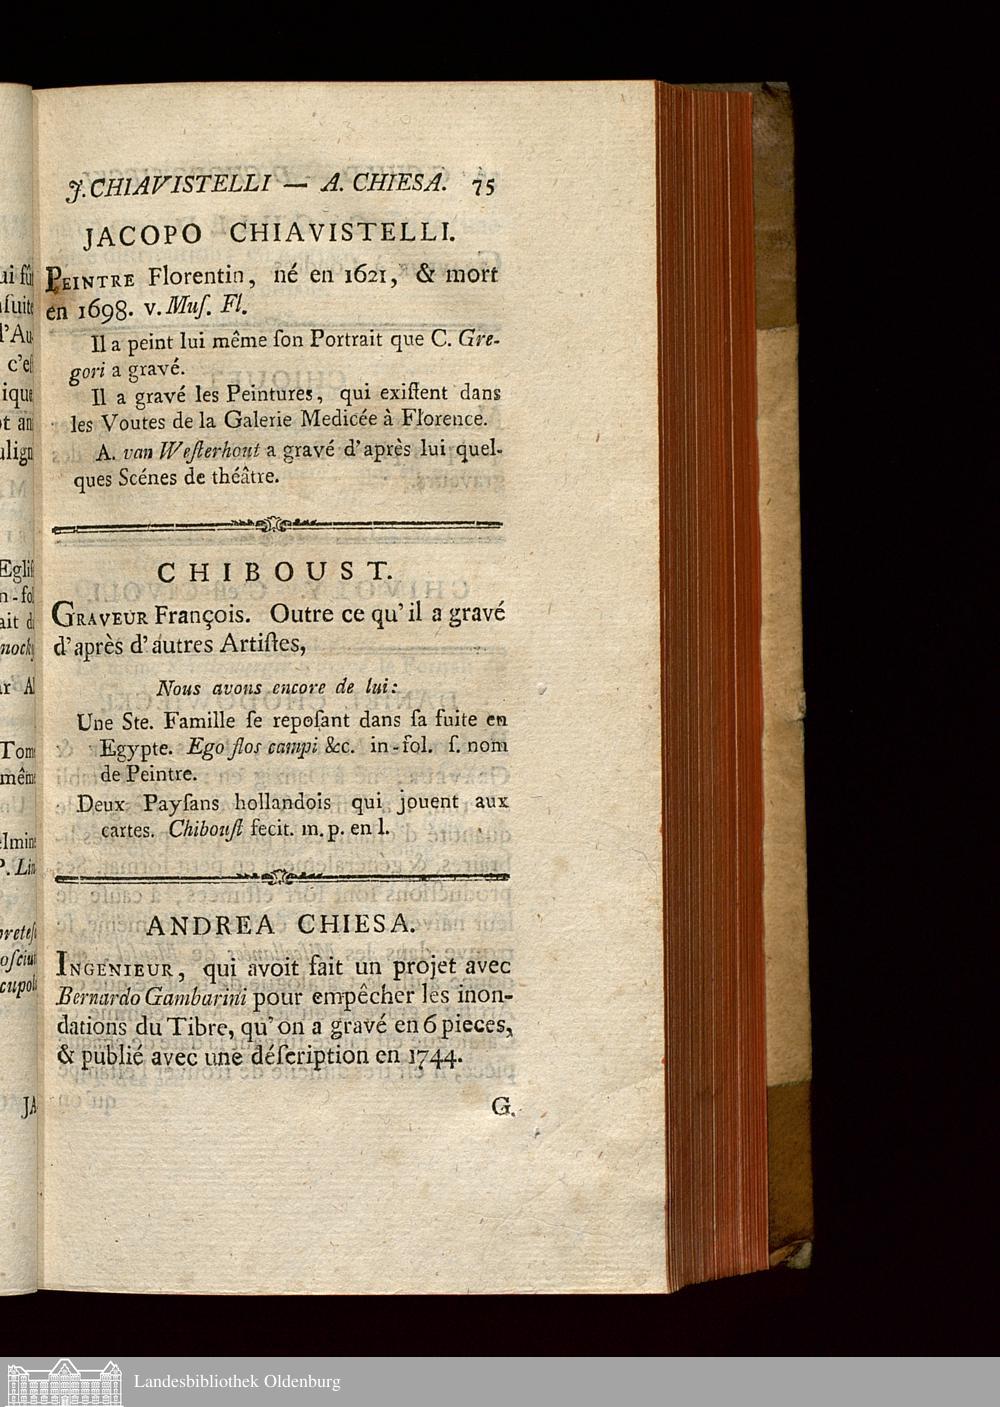 J. CHIAVISTELLI — A. CHIESA. 75
JACOPO CHIAVISTELLI.
PEINTRE Florentin, né en 1621, & mort
en 1698. v. Muſ. Fl.
Il a peint lui même ſon Portrait que C. Gre-
gori a gravé.
Il a gravé les Peintures, qui exiſtent dans
les Voutes de la Galerie Medicée à Florence.
A. van Weſterhout a gravé d'après lui quel-
ques Scénes de théâtre.
CHIBOUST.
GRAVEUR François. Outre ce qu'il a gravé
d'après d'autres Artiſtes,
Nous avons encore de lui:
Une Ste. Famille ſe repoſant dans ſa fuite en
Egypte. Ego flos campi &c. in-fol. ſ. nom
de Peintre.
Deux Payſans hollandois qui jouent aux
cartes. Chibouſt fecit. m. p. en l.
ANDREA CHIESA.
INGENIEUR, qui avoit fait un projet avec
Bernardo Gambarini pour empêcher les inon-
dations du Tibre, qu'on a gravé en 6 pieces,
& publié avec une déſcription en 1744.
G.
Landesbibliothek Oldenburg